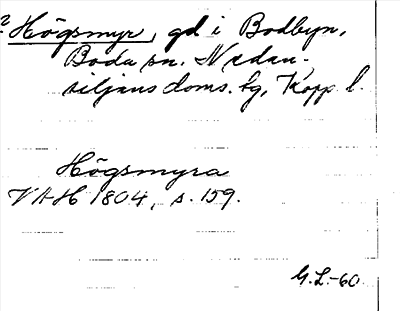 ? Högsmyr, gd i Bodbyn,
Boda sn. Nedan-
siljans doms. tg, Kopp. l.
Högsmyra
VAH 1804, s. 159.
G.L.-60